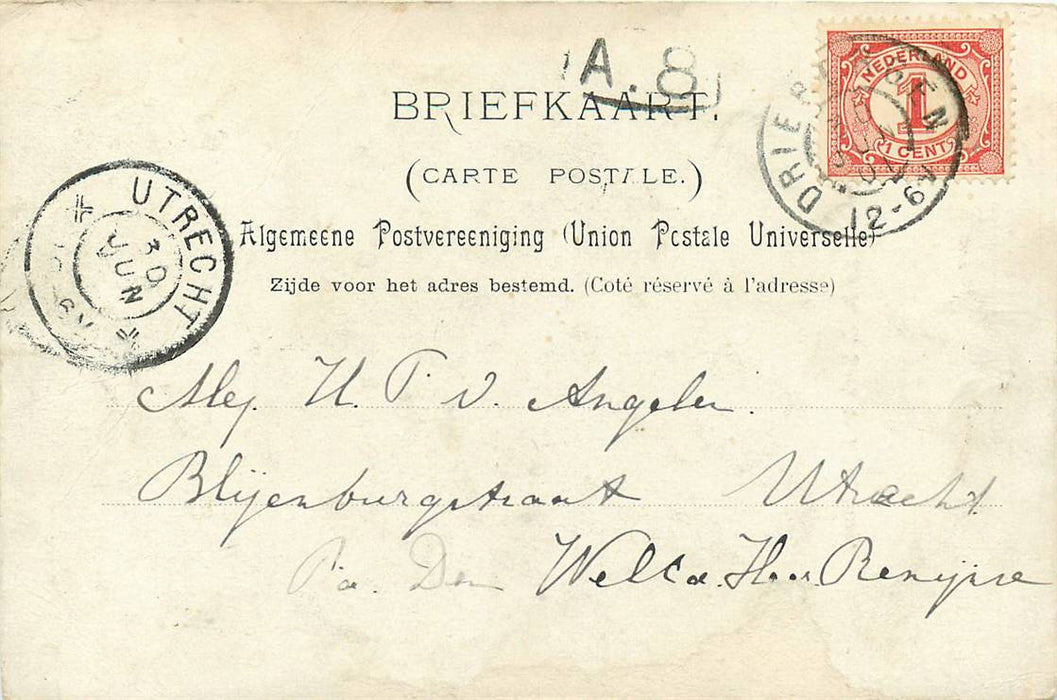 A. 8
BRIEFKAART.
(CARTE POSTALE.)
Algemeene Postvereeniging (Union Postale Universelle)
Zijde voor het adres bestemd. (Coté réservé à l'adresse)
NEDERLAND
1
1 CENT
DRIEB
12-6
UTRECHT
30 JUN
Mej. H. P. v. Angelen.
Blijenburgstraat Utrecht
P/a Den Heer